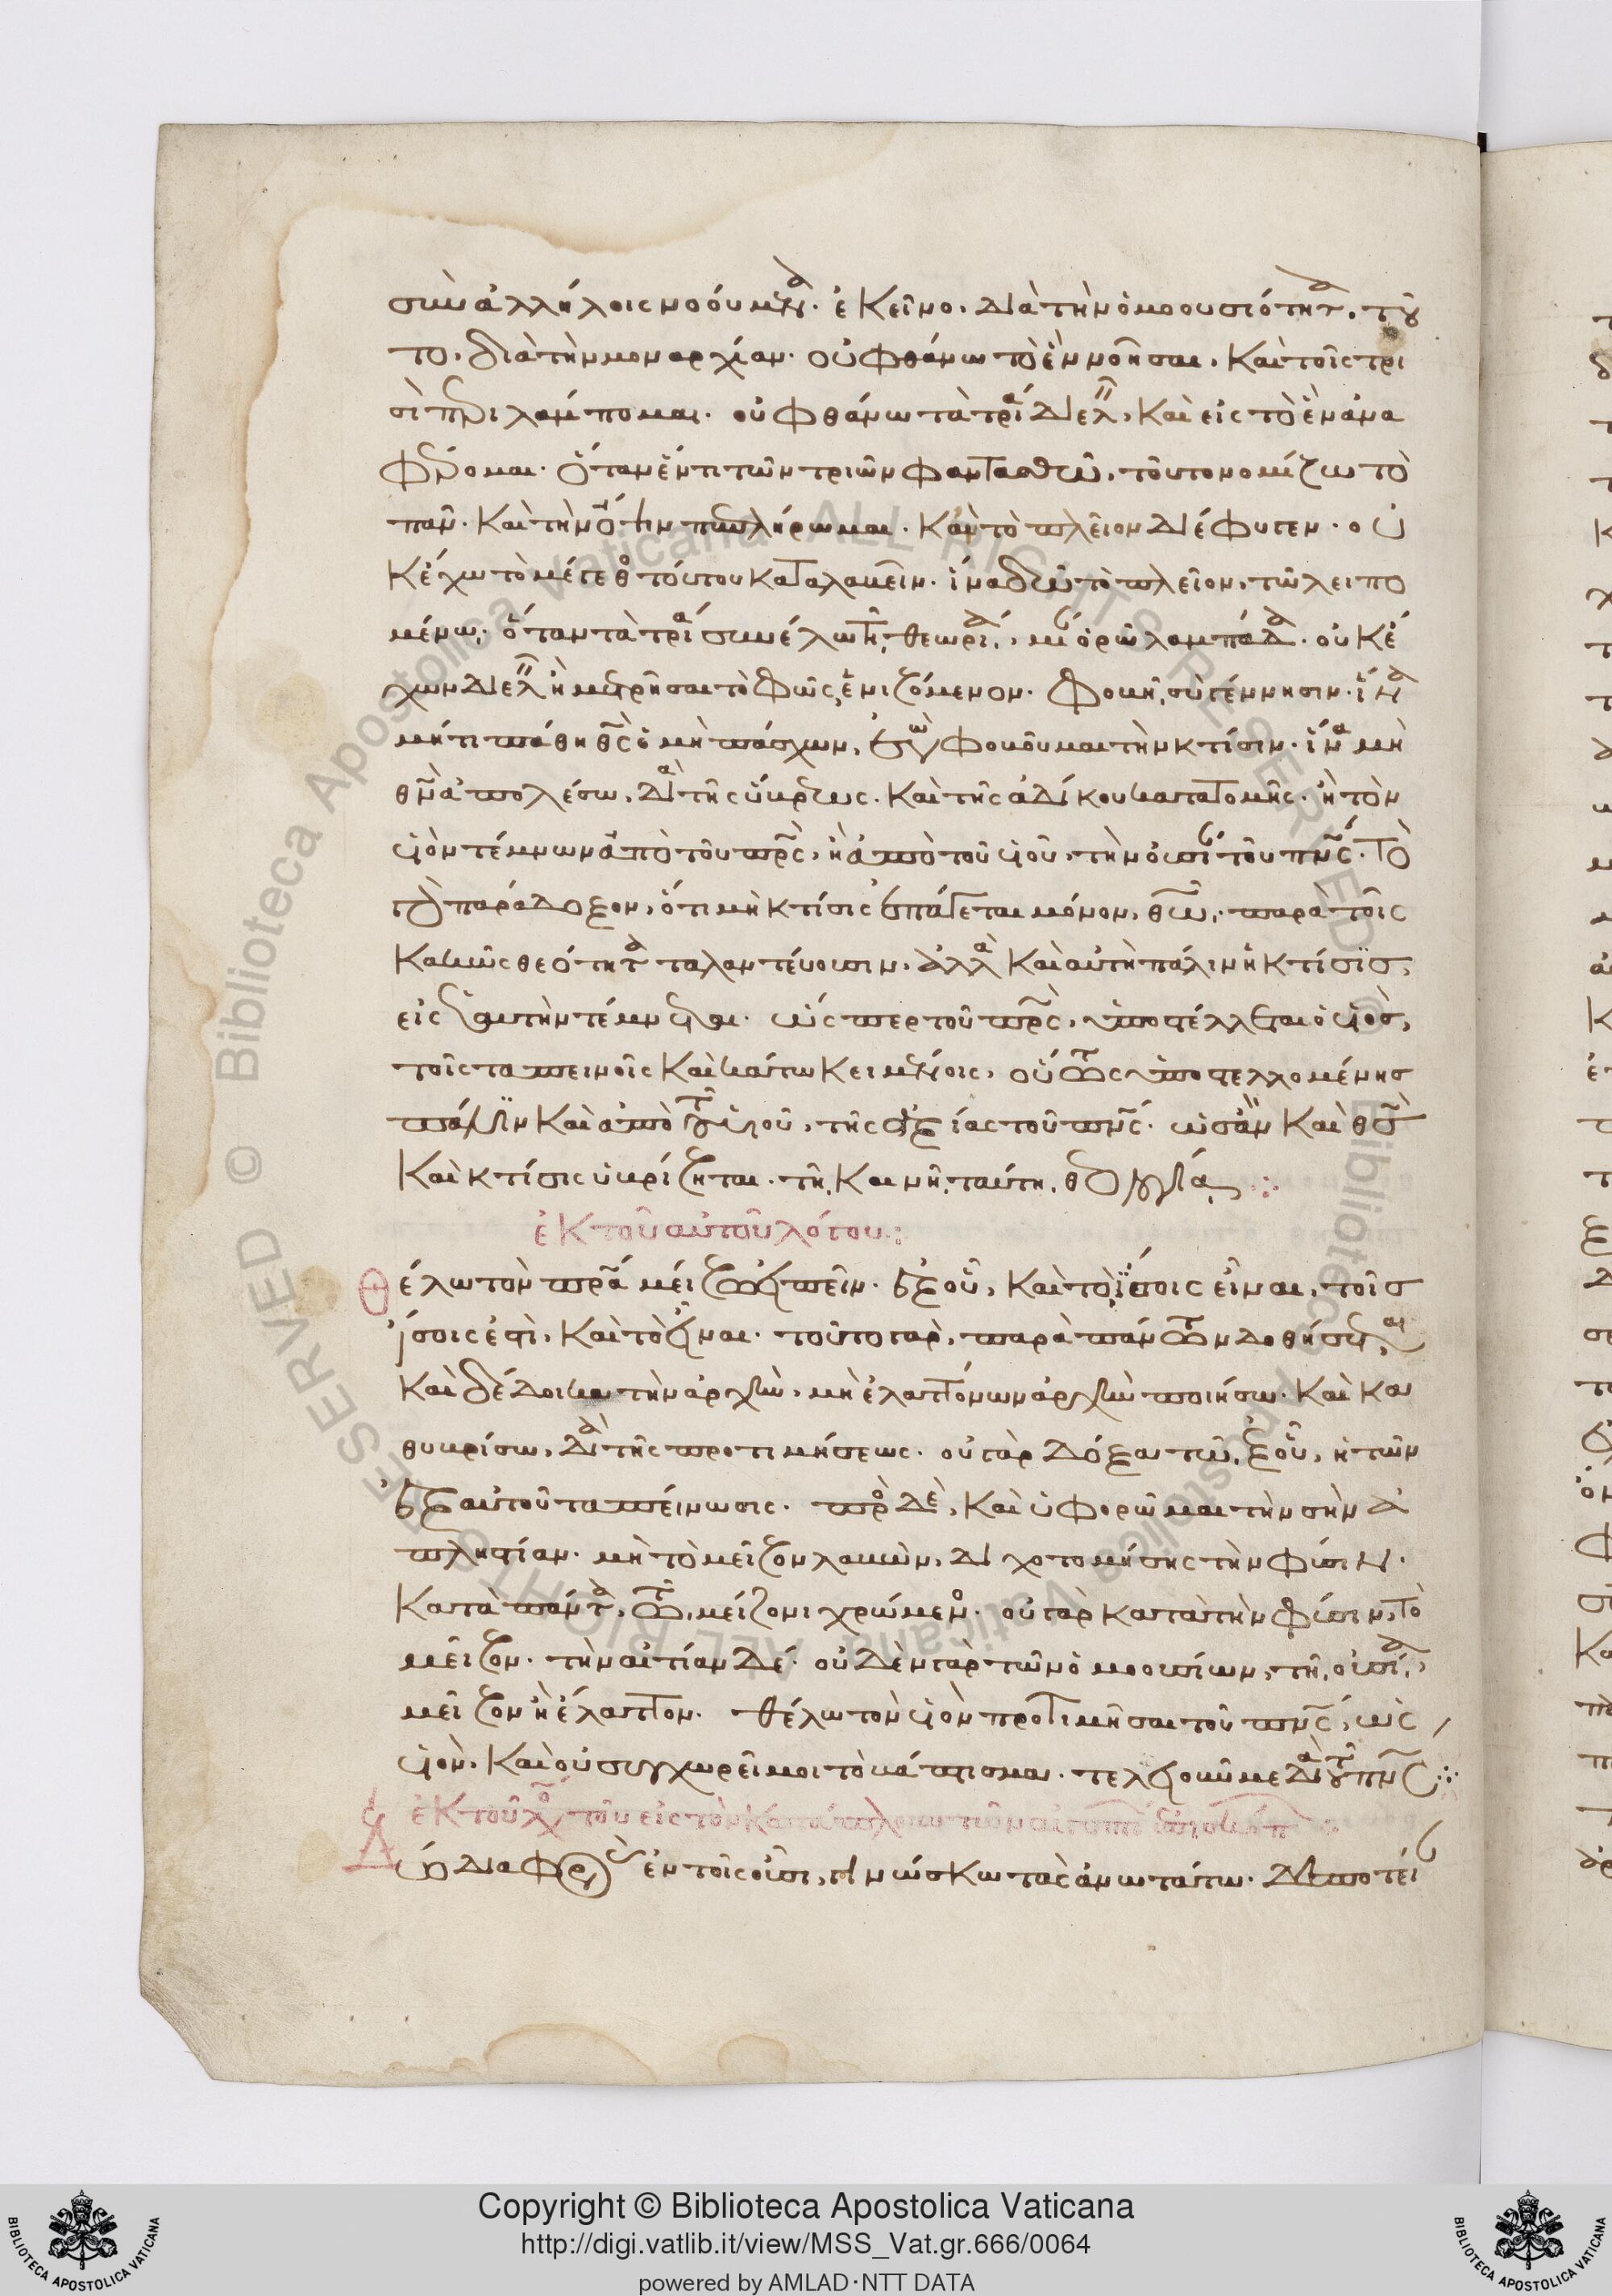 σὺν ἀλλήλοις νοούμενα· ἐκεῖνο, διὰ τὴν ὁμοουσιότητα, τοῦ
το, διὰ τὴν μοναρχίαν· οὐ φθάνω τὸ ἓν νοῆσαι, καὶ τοῖς τρι
σὶ περιλάμπομαι· οὐ φθάνω τὰ τρία διελεῖν, καὶ εἰς τὸ ἓν ἀνα
φέρομαι· ὅταν ἕν τι τῶν τριῶν φαντασθῶ, τοῦτο νομίζω τὸ
πᾶν· καὶ τὴν ὄψιν πεπλήρωμαι· καὶ τὸ πλεῖον διέφυγεν· οὐ
κ ἔχω τὸ μέγεθος τούτου καταλαβεῖν· ἵνα δῶ τὸ πλεῖον, τῷ λειπο
μένῳ· ὅταν τὰ τρία συνέλω τῇ θεωρίᾳ, μίαν ὁρῶ λαμπάδα· οὐκ ἔ
χων διελεῖν ἢ μετρῆσαι τὸ φῶς ἑνιζόμενον· φοβῇ σὺ γέννησιν· ἵνα
μή τι πάθῃ θς ὁ μὴ πάσχων, ἐγὼ φοβοῦμαι τὴν κτίσιν· ἵνα μὴ
θν ἀπολέσω, διὰ τῆς ὕβρεως· καὶ τῆς ἀδίκου κατατομῆς· ἢ τὸν
υἱὸν τέμνων ἀπὸ τοῦ πρς, ἢ ἀπὸ τοῦ υἱοῦ, τὴν οὐσίαν τοῦ πνς· τὸ
γὰρ παράδοξον, ὅτι μὴ κτίσις ἐπάγεται μόνον, θῶ, παρὰ τοῖς
κακῶς θεότητα ταλαντεύουσιν, ἀλλὰ καὶ αὐτὴ πάλιν ἡ κτίσις,
εἰς ἑαυτὴν τέμνεται· ὥσπερ τοῦ πρς, ὑποστέλλεται ὁ υἱός,
τοῖς ταπεινοῖς καὶ κάτω κειμένοις, οὕτως ὑποστελλομένης
πάλιν καὶ ἀπὸ τοῦ υἱοῦ, τῆς ἀξίας τοῦ πνς· ὡς ἂν καὶ θς
καὶ κτίσις ὑβρίζηται· τῇ καινῇ ταύτῃ θεολογίᾳ
ἐκ τοῦ αὐτοῦ λόγου:
Θέλω τὸν πρα μείζω εἰπεῖν· ἐξ οὗ, καὶ τὸ ἴσοις εἶναι, τοῖς
ἴσοις ἐστὶ, καὶ τὸ εἶναι· τοῦτο γὰρ, παρὰ πάντων δοθήσεται,
καὶ δέδοικα τὴν ἀρχὴν, μὴ ἐλαττόνων ἀρχὴν ποιήσω· καὶ κα
θυβρίσω, διὰ τῆς προτιμήσεως· οὐ γὰρ δόξα τῷ ἐξ οὗ, ἡ τῶν
ἐξ αὐτοῦ ταπείνωσις· πρὸς δὲ, καὶ ὑφορῶμαι τὴν σὴν ἀ
πληστίαν· μὴ τὸ μεῖζον λαβὼν, διχοτομήσῃς τὴν φύσιν·
κατὰ πάντα, τῷ μείζονι χρώμενος· οὐ γὰρ κατὰ τὴν φύσιν, τὸ
μεῖζον· τὴν αἰτίαν δέ· οὐδὲν γὰρ τῶν ὁμοουσίων, τῇ οὐσίᾳ,
μεῖζον ἢ ἔλαττον· θέλω τὸν υἱὸν προτιμῆσαι τοῦ πνς, ὡς
υἱόν· καὶ οὐ συγχωρεῖ μοι τὸ βάπτισμα· τελειοῦν με διὰ τοῦ πνς
Δύο διαφορὰς ἐν τοῖς οὖσι, γινώσκω τὰς ἀνωτάτω· δεσποτεί
Copyright © Biblioteca Apostolica Vaticana
http://digi.vatlib.it/view/MSS_Vat.gr.666/0064
powered by AMLAD·NTT DATA